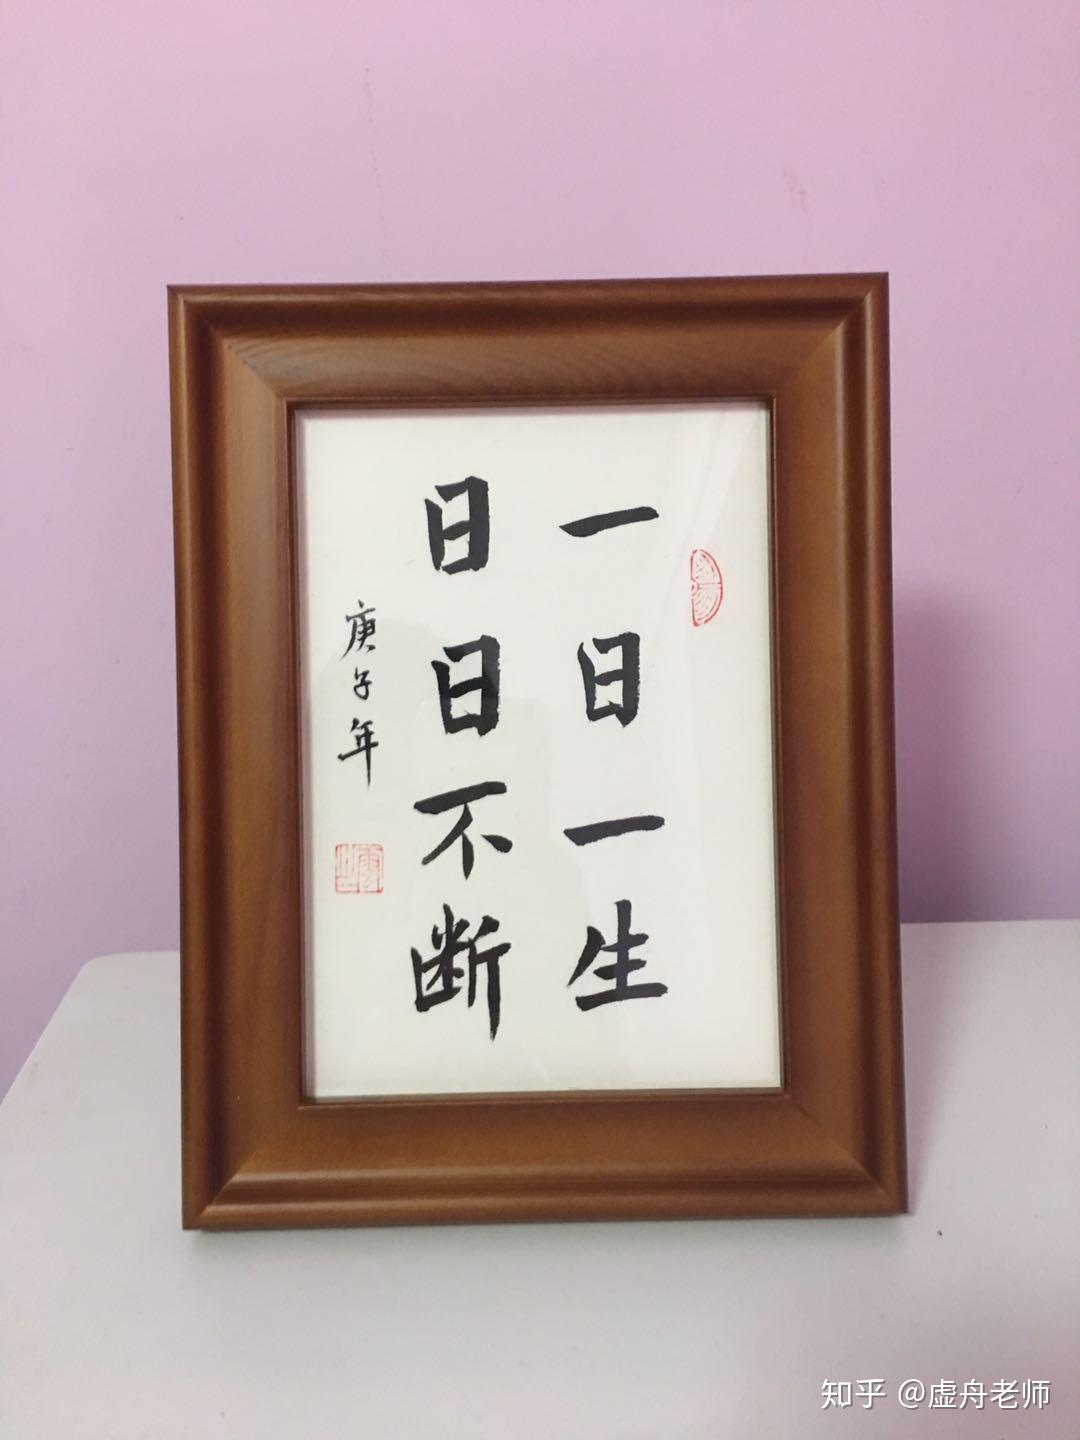 一日一生
日日不断
庚子年
知乎 @虚舟老师